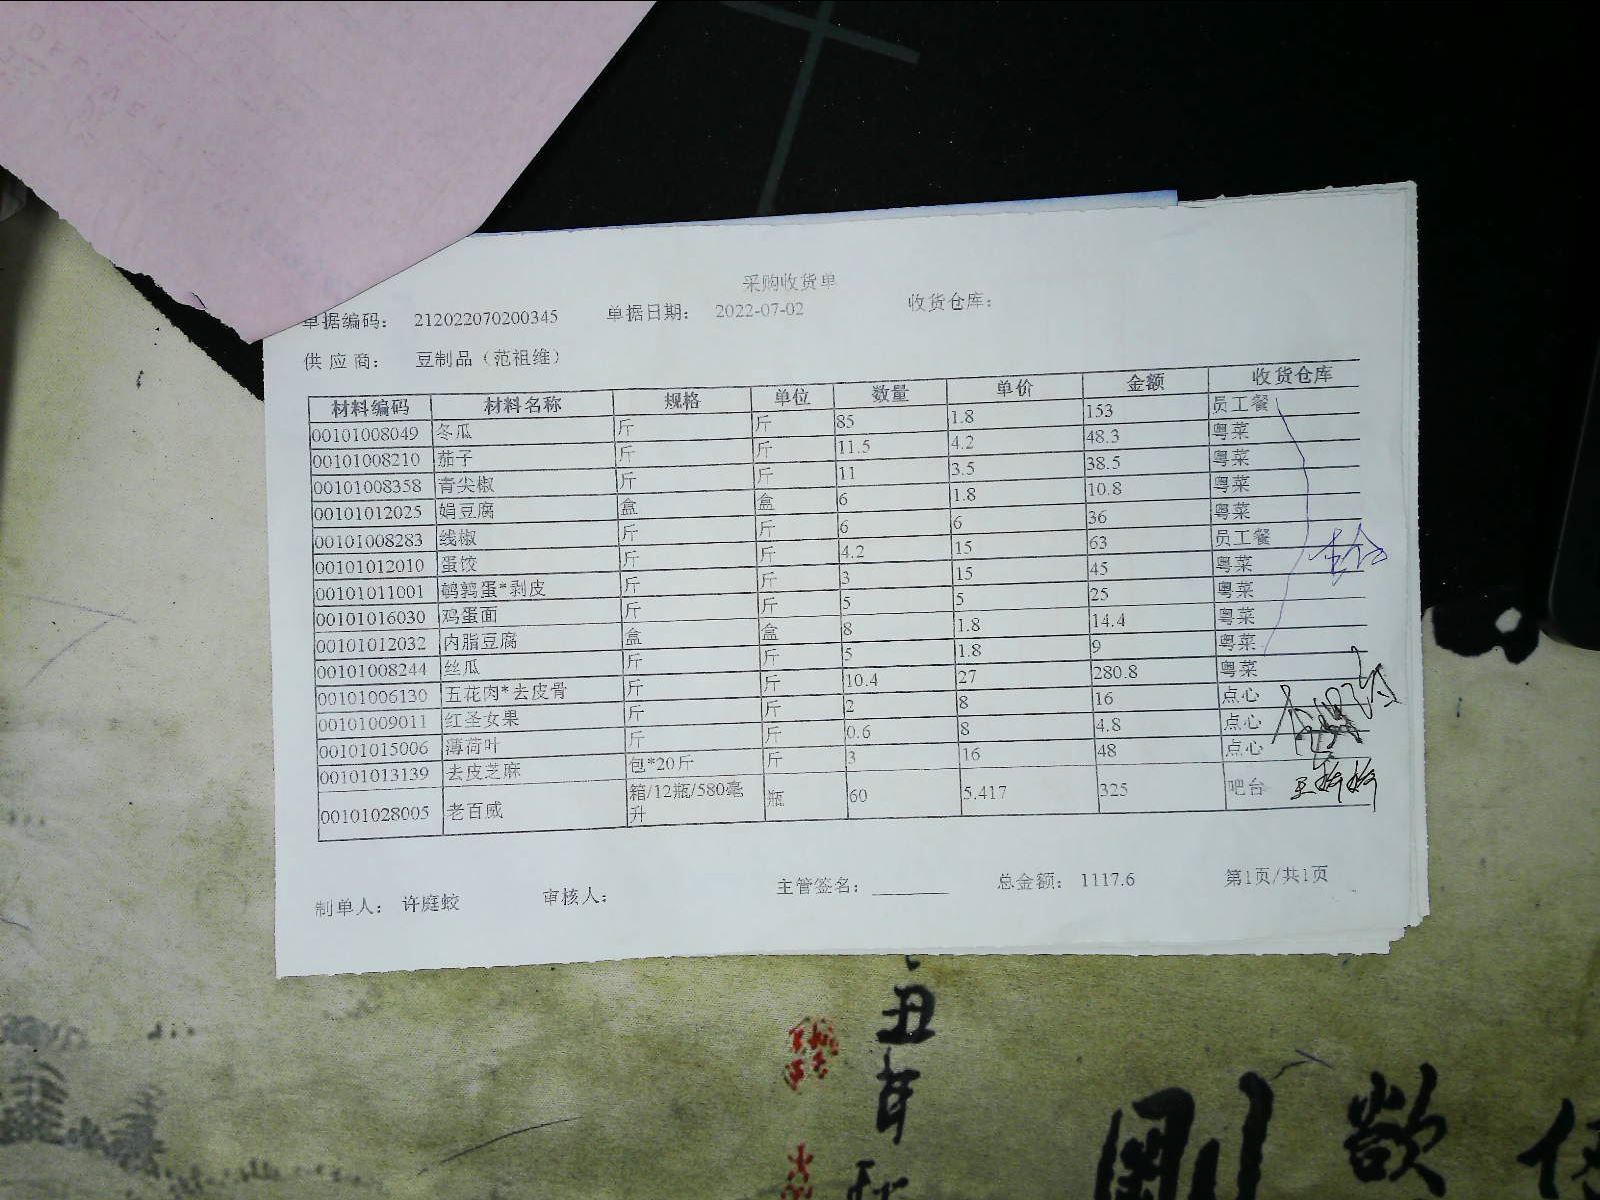 采购收货单
单据编码： 212022070200345 单据日期： 2022-07-02 收货仓库：
供 应 商： 豆制品（范祖维）
材料编码 材料名称 规格 单位 数量 单价 金额 收货仓库
00101008049 冬瓜 斤 斤 85 1.8 153 员工餐
00101008210 茄子 斤 斤 11.5 4.2 48.3 粤菜
00101008358 青尖椒 斤 斤 11 3.5 38.5 粤菜
00101012025 娟豆腐 盒 盒 6 1.8 10.8 粤菜
00101008283 线椒 斤 斤 6 6 36 粤菜
00101012010 蛋饺 斤 斤 4.2 15 63 员工餐
00101011001 鹌鹑蛋*剥皮 斤 斤 3 15 45 粤菜
00101016030 鸡蛋面 斤 斤 5 5 25 粤菜
00101012032 内脂豆腐 盒 盒 8 1.8 14.4 粤菜
00101008244 丝瓜 斤 斤 5 1.8 9 粤菜
00101006130 五花肉*去皮骨 斤 斤 10.4 27 280.8 粤菜
00101009011 红圣女果 斤 斤 2 8 16 点心
00101015006 薄荷叶 斤 斤 0.6 8 4.8 点心
00101013139 去皮芝麻 包*20斤 斤 3 16 48 点心
00101028005 老百威 箱/12瓶/580毫升 瓶 60 5.417 325 吧台
制单人： 许庭蛟 审核人： 主管签名： 总金额： 1117.6 第1页/共1页
丑年秋
剛
欲